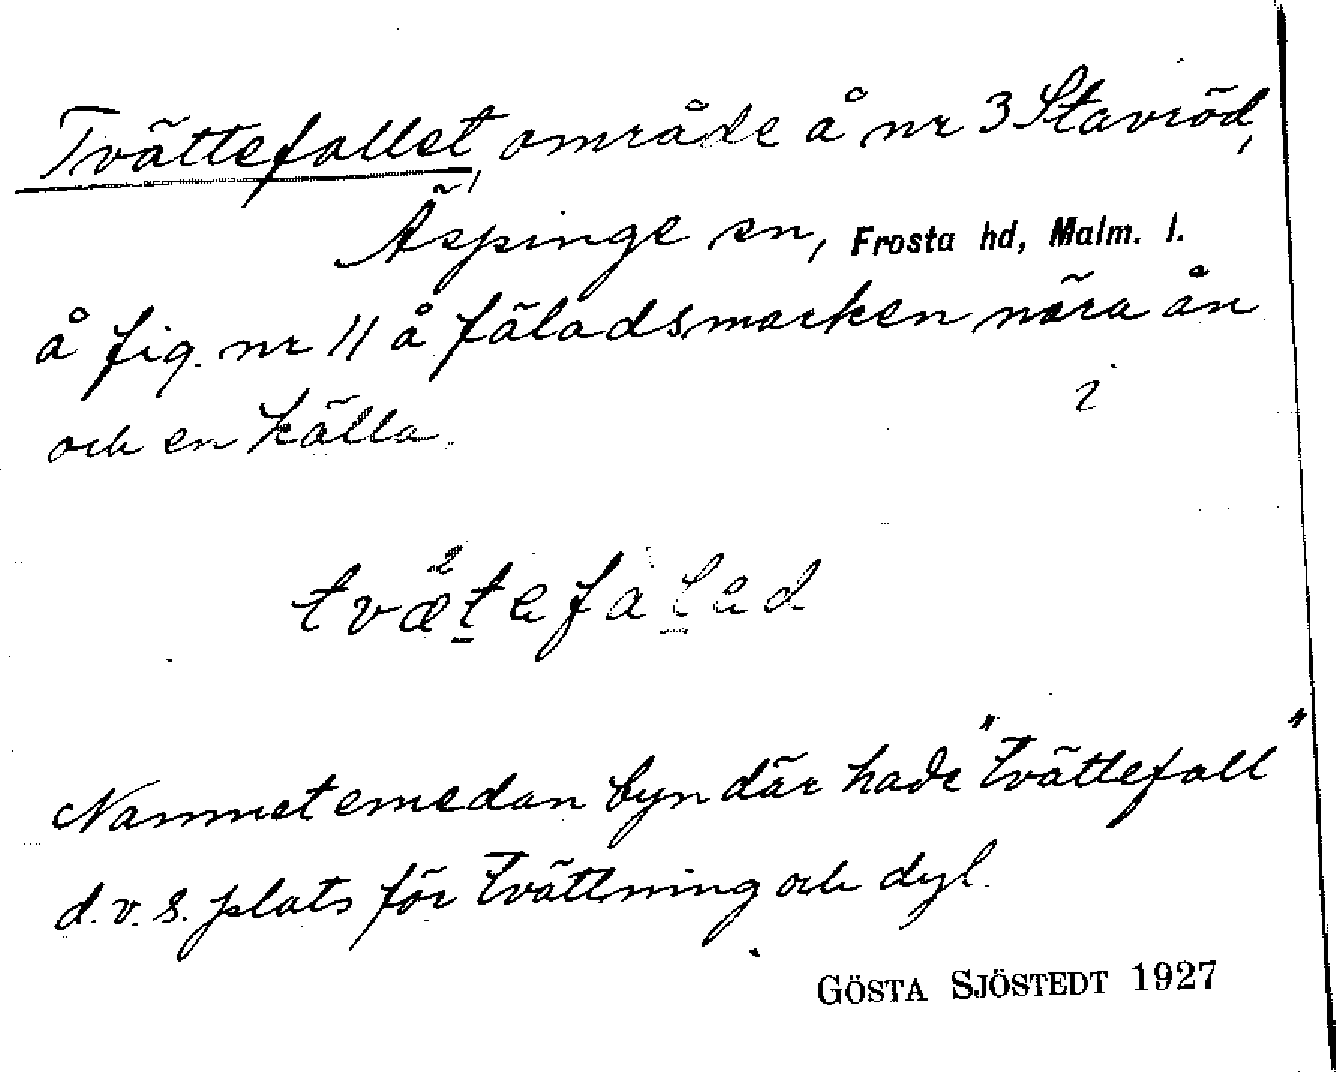 Tvättefallet, område å nr 3 Stavröd,
Äspinge sn, Frosta hd, Malm. l.
å fig. nr 11 å fäladsmarken nära ån
i
och en källa.
Namnet emedan byn där hade "tvättefall"
d.v.s. plats för tvättning och dyl.
GÖSTA SJÖSTEDT 1927